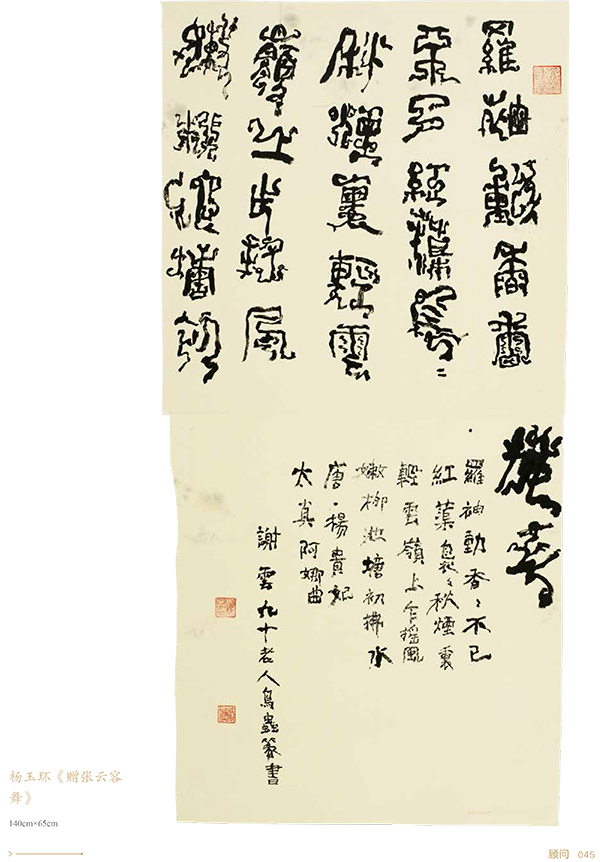 羅袖動香香
不已紅蕖嫋〻
秋煙裏輕雲
嶺上乍搖風
嫩柳池塘初
拂水
羅袖動香〻不已
紅蕖嫋〻秋煙裏
輕雲嶺上乍搖風
嫩柳池塘初拂水
唐·楊貴妃
太真阿娜曲
謝雲九十老人鳥蟲篆書
杨玉环《赠张云容
舞》
140cm×65cm
顾问 045